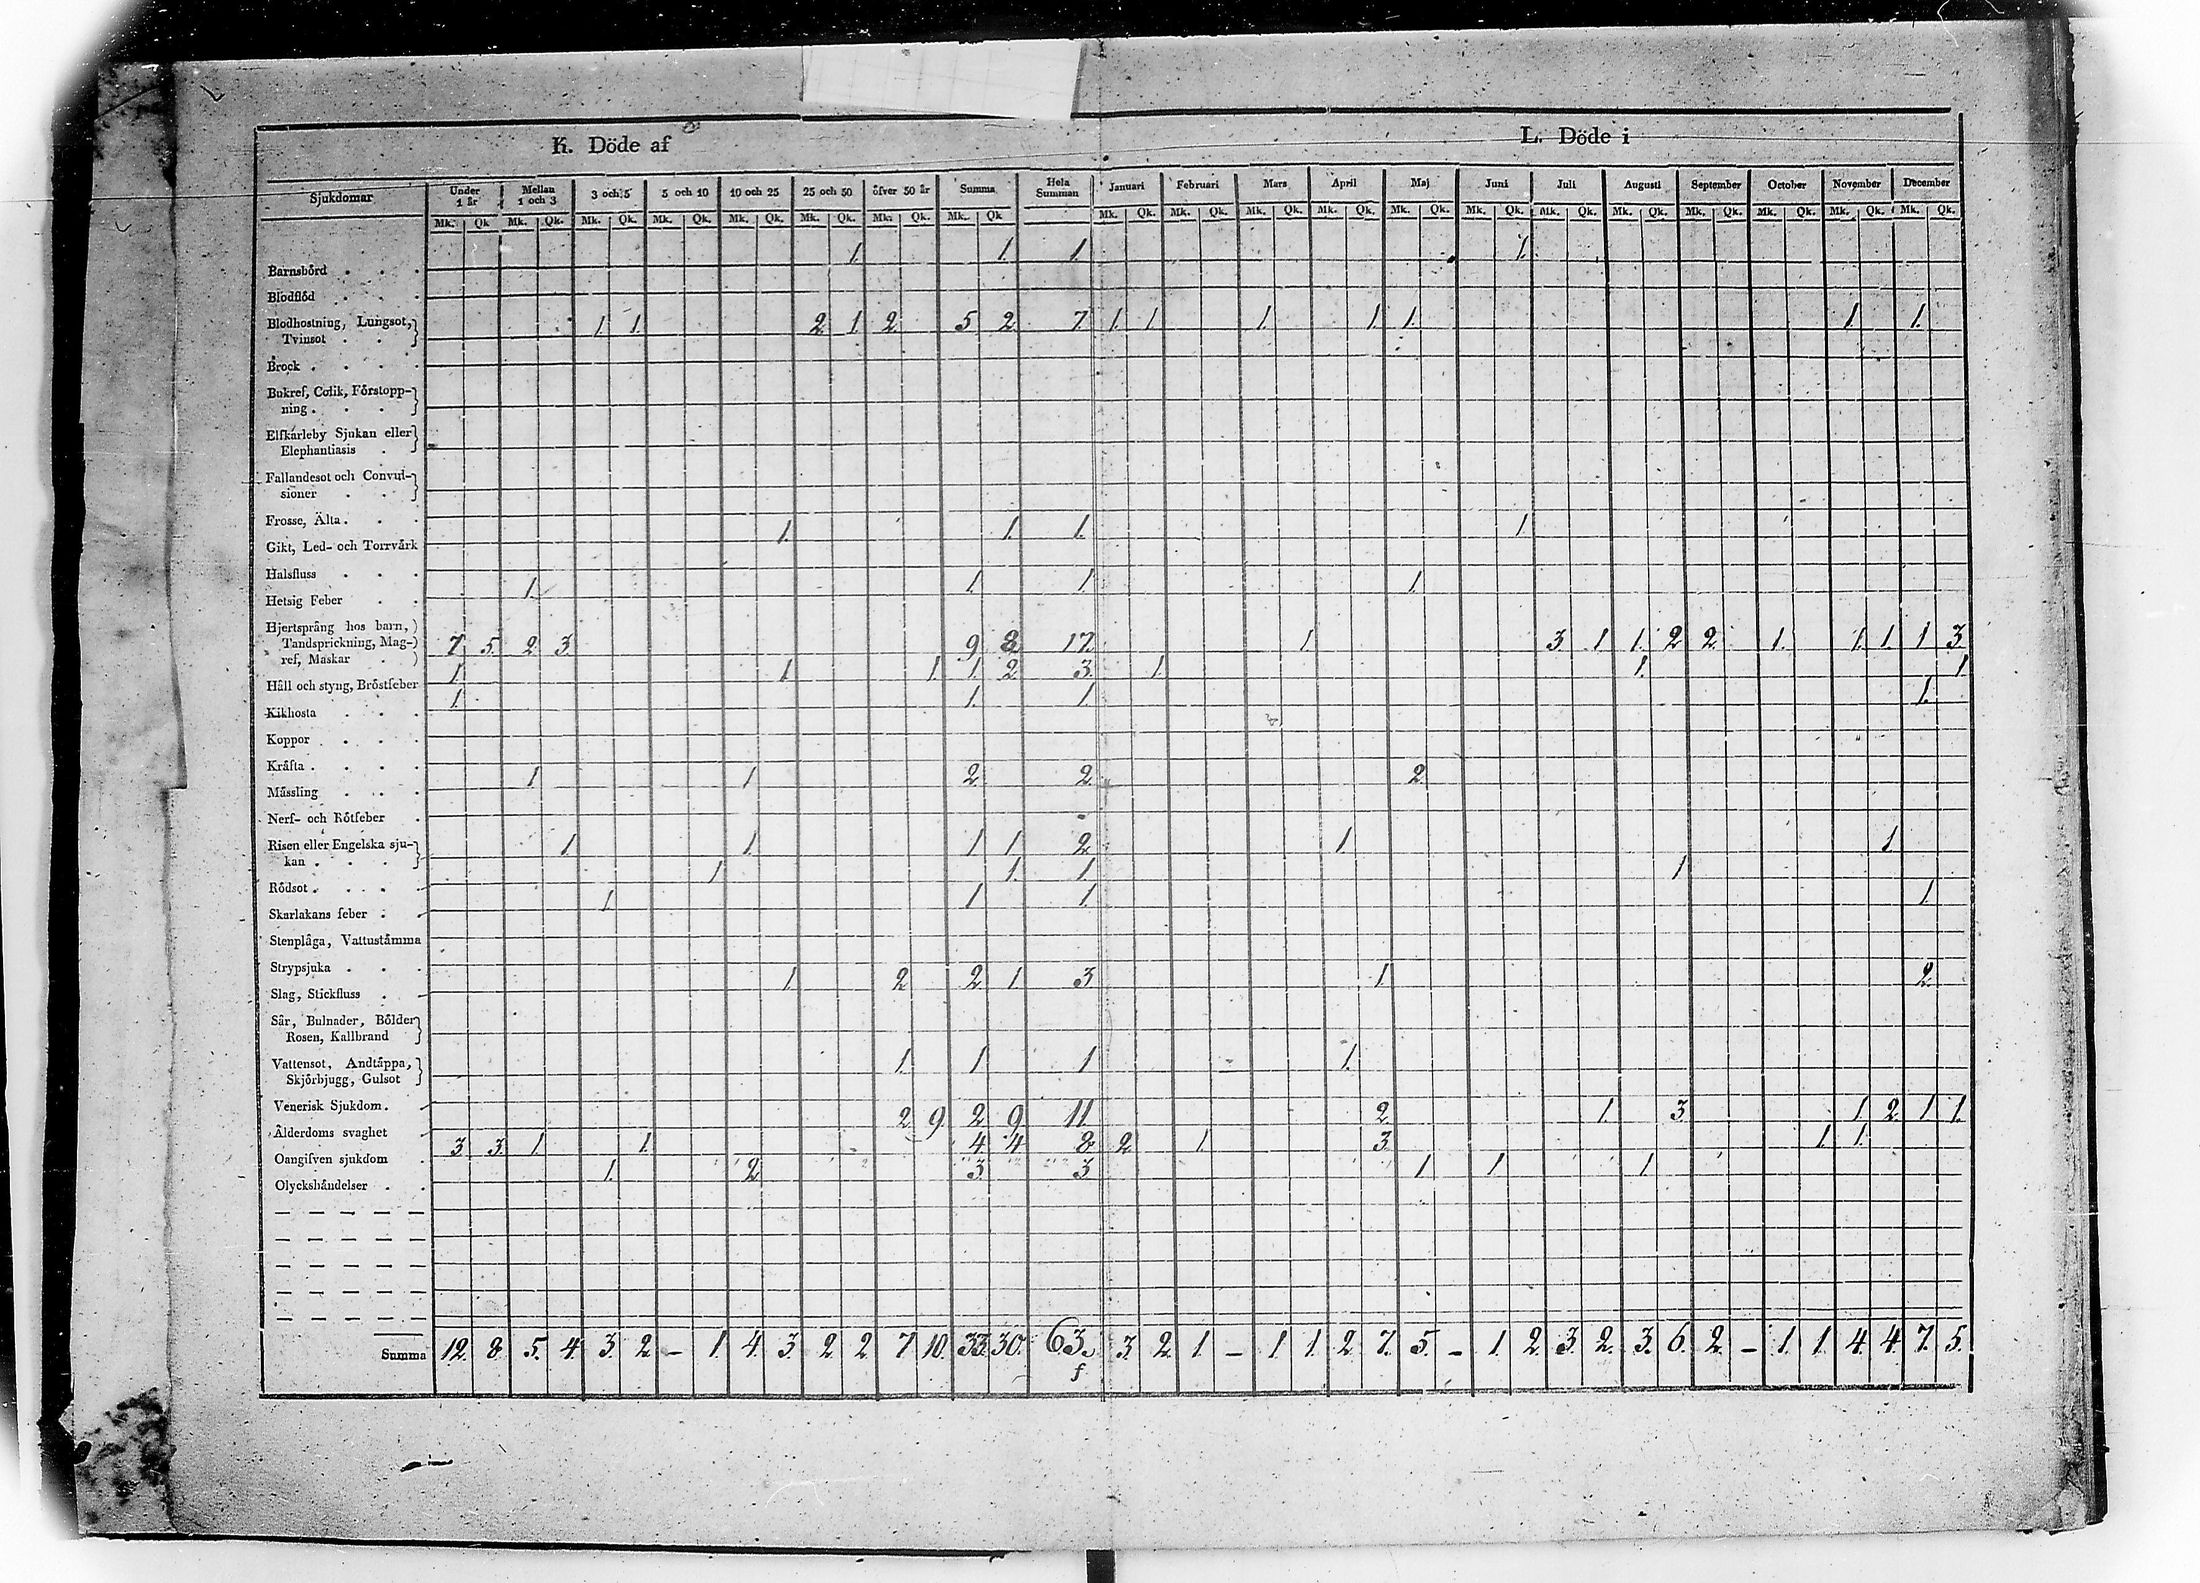 K. Döde af L. Döde i
Sjukdomar Under 1 år Mellan 1 och 3 3 och 5 5 och 10 10 och 25 25 och 50 öfver 50 år Summa Hela Summan Januari Februari Mars April Maj Juni Juli Augusti September October November December
Mk. Qk. Mk. Qk. Mk. Qk. Mk. Qk. Mk. Qk. Mk. Qk. Mk. Qk. Mk. Qk Mk. Qk. Mk. Qk. Mk. Qk. Mk. Qk. Mk. Qk. Mk. Qk. Mk. Qk. Mk. Qk. Mk. Qk. Mk. Qk. Mk. Qk. Mk. Qk.
Barnsbörd . . . 1. 1. 1. 1.
Blodflöd . . .
Blodhostning, Lungsot,
Tvinsot . . . 1. 1. 2 1 2 5 2 7 1. 1 1. 1 1. 1. 1.
Bråck . . . .
Bukref, Colik, Förstopp-
ning . . .
Elfkarleby Sjukan eller
Elephantiasis .
Fallandesot och Convul-
sioner . . .
Frosse, Älta . . .
Gikt, Led- och Torrvärk 1. 1. 1. 1
Halsfluss . . .
Hetsig Feber . . 1. 1. 1. 1.
Hjertsprång hos barn,
Tandsprickning, Mag-
ref, Maskar . . 7. 5. 2 3. 9 8 17. 1 3 1 1. 2 2 1. 1. 1. 1 3.
Håll och styng, Bröstfeber 1. 1. 1. 1. 2 3. 1. 1. 1
Kikhosta . . . 1. 1. 1. 1.
Koppor . . . .
Kräfta . . . .
Mässling . . . 1 1 2. 2 2.
Nerf- och Rötfeber .
Risen eller Engelska sju-
kan . . . 1. 1. 1 1 2 1. 1.
Rödsot . . . . 1 1. 1 1
Skarlakans feber . . 1. 1 1. 1.
Stenplåga, Vattustämma
Strypsjuka . . .
Slag, Stickfluss . . 1 2 2 1 3 1. 2.
Sår, Bulnader, Bölder
Rosen, Kallbrand
Vattensot, Andtäppa,
Skjörbjugg, Gulsot 1. 1 1 1.
Venerisk Sjukdom . .
Ålderdoms svaghet 2 9. 2 9 11. 2. 1. 3. 1. 2. 1 1.
Oangifven sjukdom 3. 3. 1 1. 4. 4 8 2. 1. 3. 1. 1.
Olyckshändelser . . 1. 2 3. 3 1 1 1.
Summa 12. 8. 5. 4. 3. 2. – 1. 4. 3. 2 2. 7 10. 33. 30. 63. 3. 2. 1 – 1 1. 2. 7. 5. – 1. 2 3. 2. 3. 6. 2. – 1. 1. 4. 4. 7. 5.
f